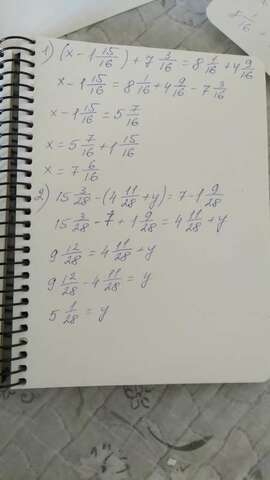 1) (x - 1 15/16) + 7 3/16 = 8 1/16 + 4 9/16
x - 1 15/16 = 8 1/16 + 4 9/16 - 7 3/16
x - 1 15/16 = 5 7/16
x = 5 7/16 + 1 15/16
x = 7 6/16
2) 15 3/28 - (4 11/28 + y) = 7 - 1 9/28
15 3/28 - 7 + 1 9/28 = 4 11/28 + y
9 12/28 = 4 11/28 + y
9 12/28 - 4 11/28 = y
5 1/28 = y